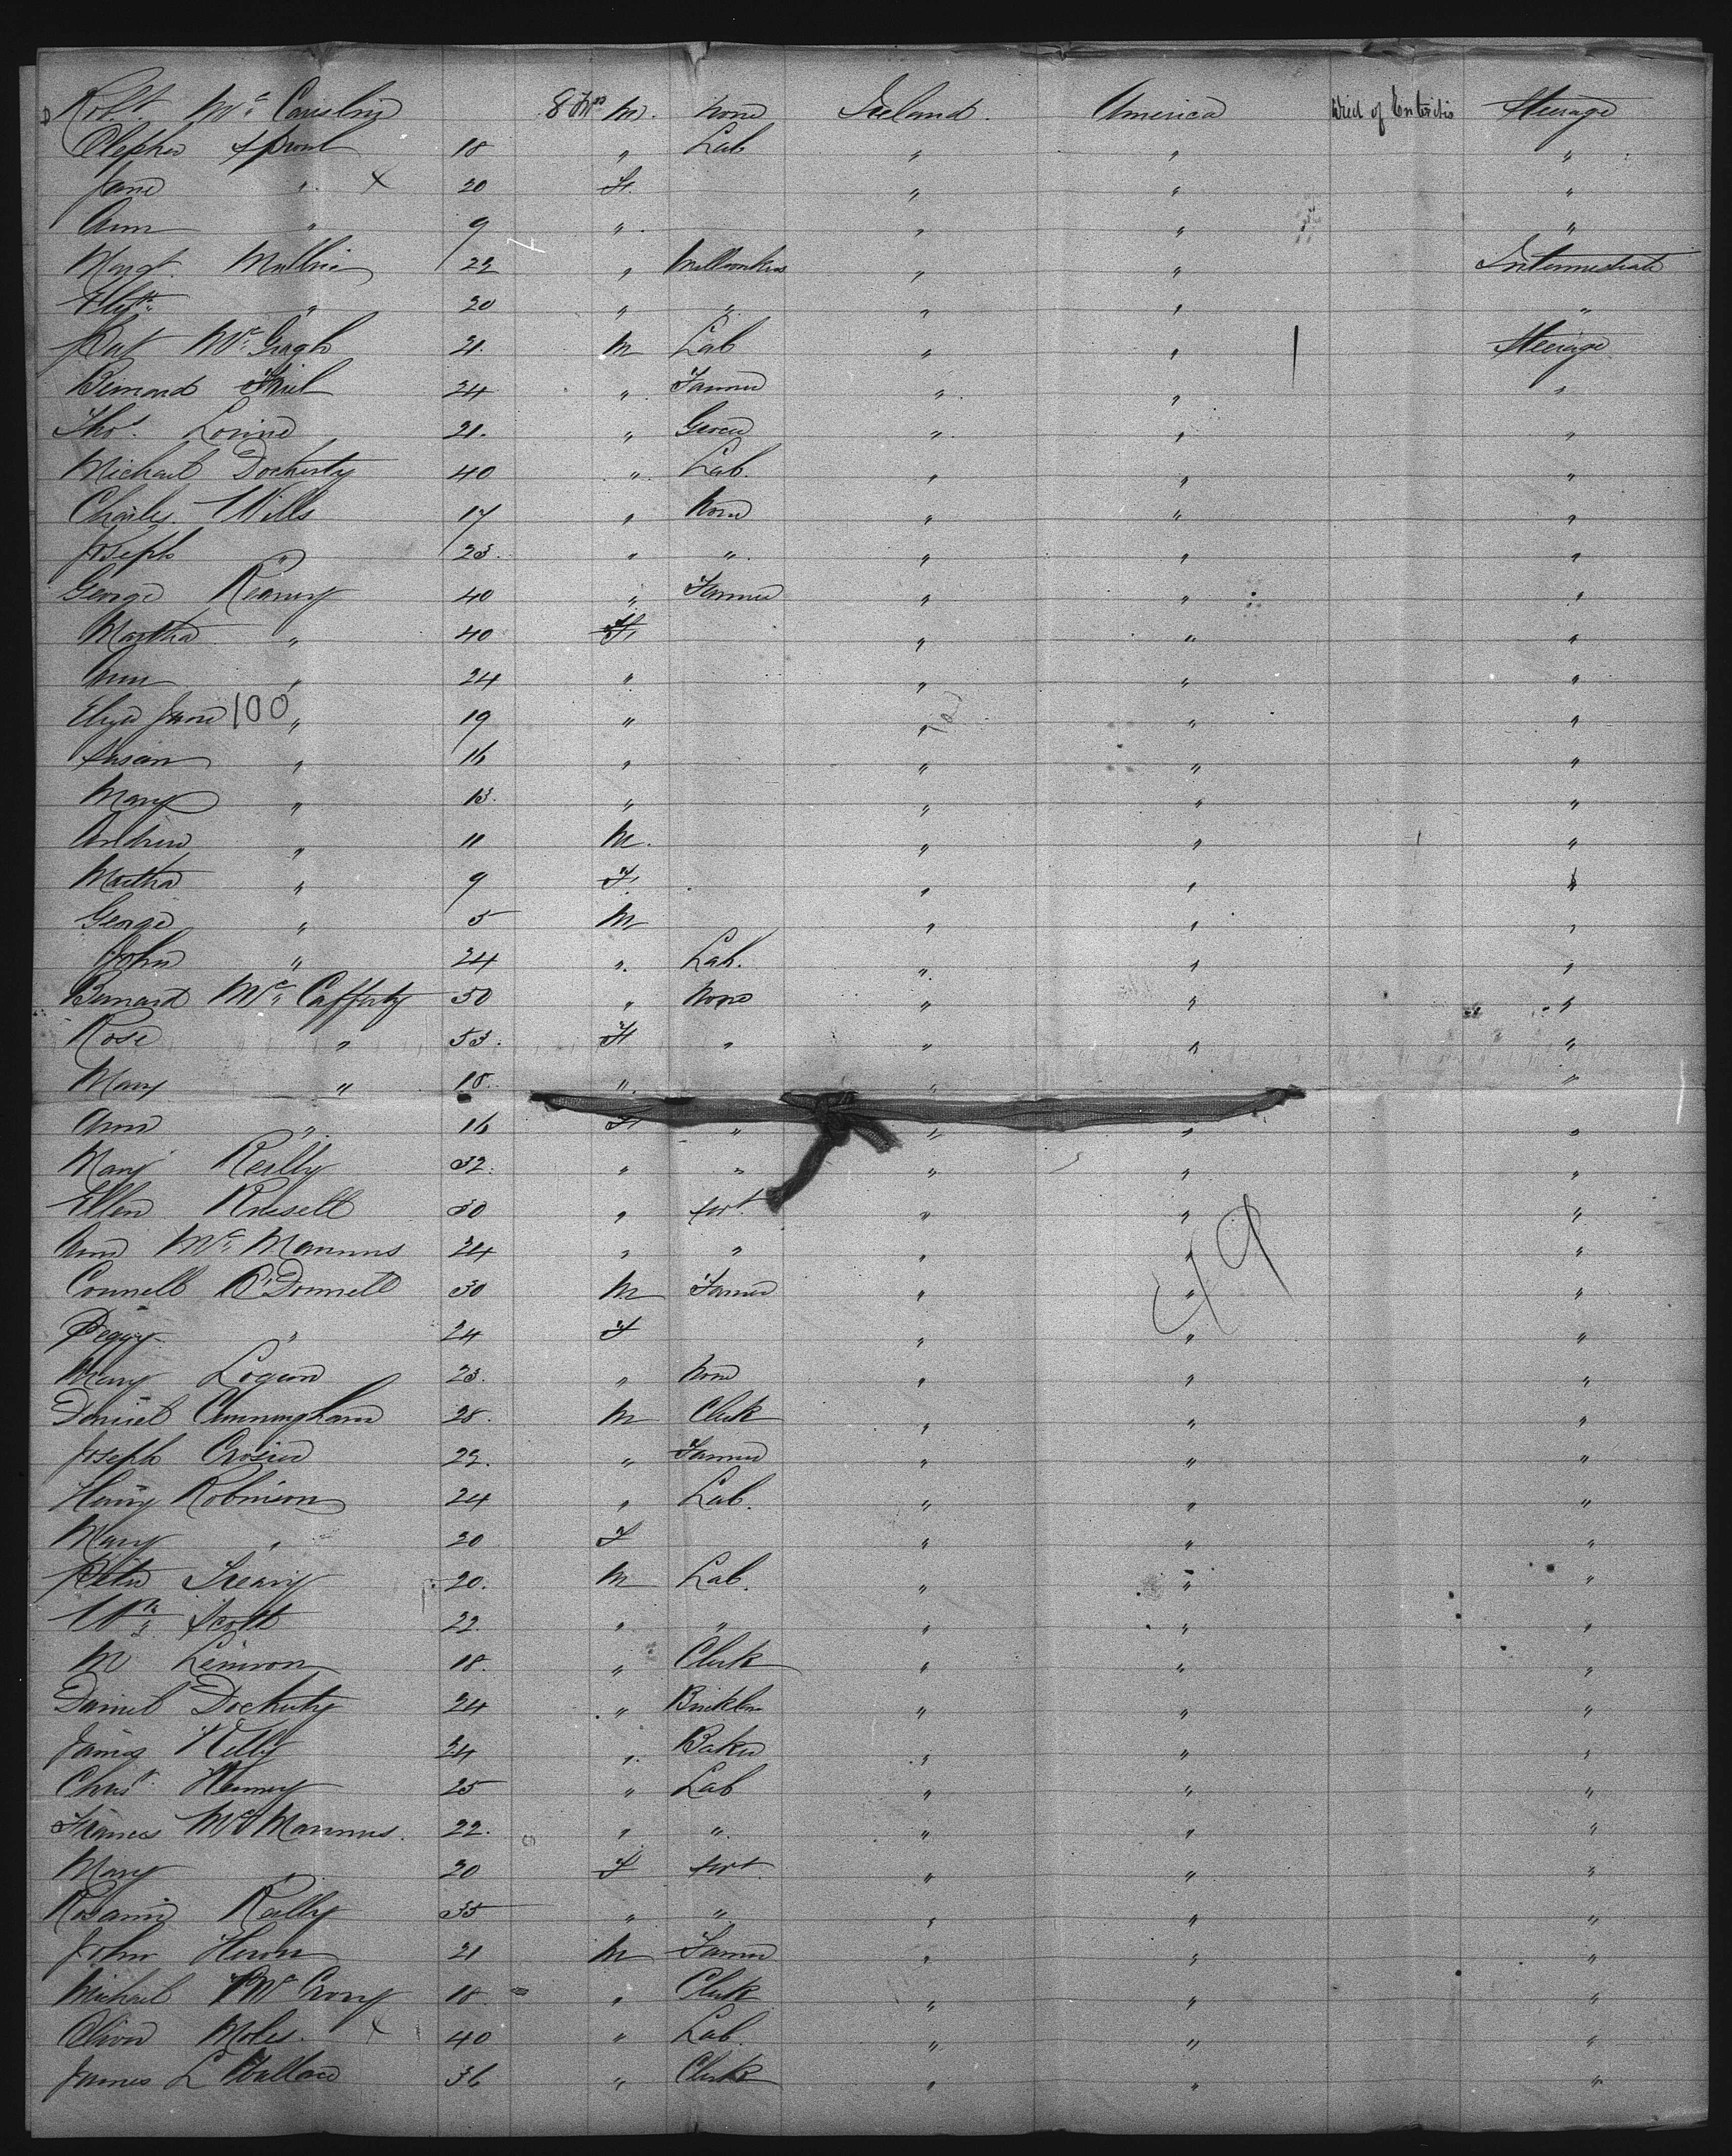 Robt. Mc. 8 Mos M. None Ireland. America Died of Enteritis Steerage
Sproul 18 " Lab " " "
Jane " X 20 F. " " "
Ann " 9 " " " "
Margt. 22 " " " Intermediate
Elizth " 20 " " " " "
Pat Mc. 21. M Lab " " Steerage
Bernard 24 " Farmer " " "
Thos. 21. " Grocer " " "
Michael Docherty 40 " Lab. " " "
Charles Wills 17 " None " " "
Joseph " 23. " " " " "
George 40 " Farmer " " "
Martha " 40 F. " " "
Ann " 24 " " " "
Eliza Jane 100 " 19 " " " "
Susan " 16 " " " "
Mary " 13. " " " "
Andrew " 11 M. " " "
Martha " 9 F. " " "
George " 5 M " " "
John " 24 " Lab. " " "
Bernard Mc. Cafferty 50 " None " " "
Rose " 53. F " " " "
Mary " 18. " " "
Ann " 16 F " " " "
Mary Reilly 32. " " " " "
Ellen Russell 30 " Svt. " " "
Ann Mc. Manus 24 " " " " "
Connell O'Donnell 30 M Farmer " " "
49
Peggy " 24 F " " "
Mary Logan 23. " None " " "
Daniel Cunningham 28. M Clerk " " "
Joseph Crosier 22. " Farmer " " "
Henry Robinson 24 " Lab. " " "
Mary " 20 F " " "
Peter 20. M Lab. " " "
Wm. Scott 22. " " " " "
M Lennon 18. " Clerk " " "
Daniel Docherty 24 " " " "
James 24 " Baker " " "
Christ. 25 " Lab " " "
Francis Mc Manus. 22. " " " " "
Mary " 20 F Svt " " "
Rosanna Reilly 35 " " " " "
John Heron 21 M Farmer " " "
Michael Mc Crory 18. " Clerk " " "
Oliver Moles. X 40 " Lab. " " "
James L 36 " Clerk " " "